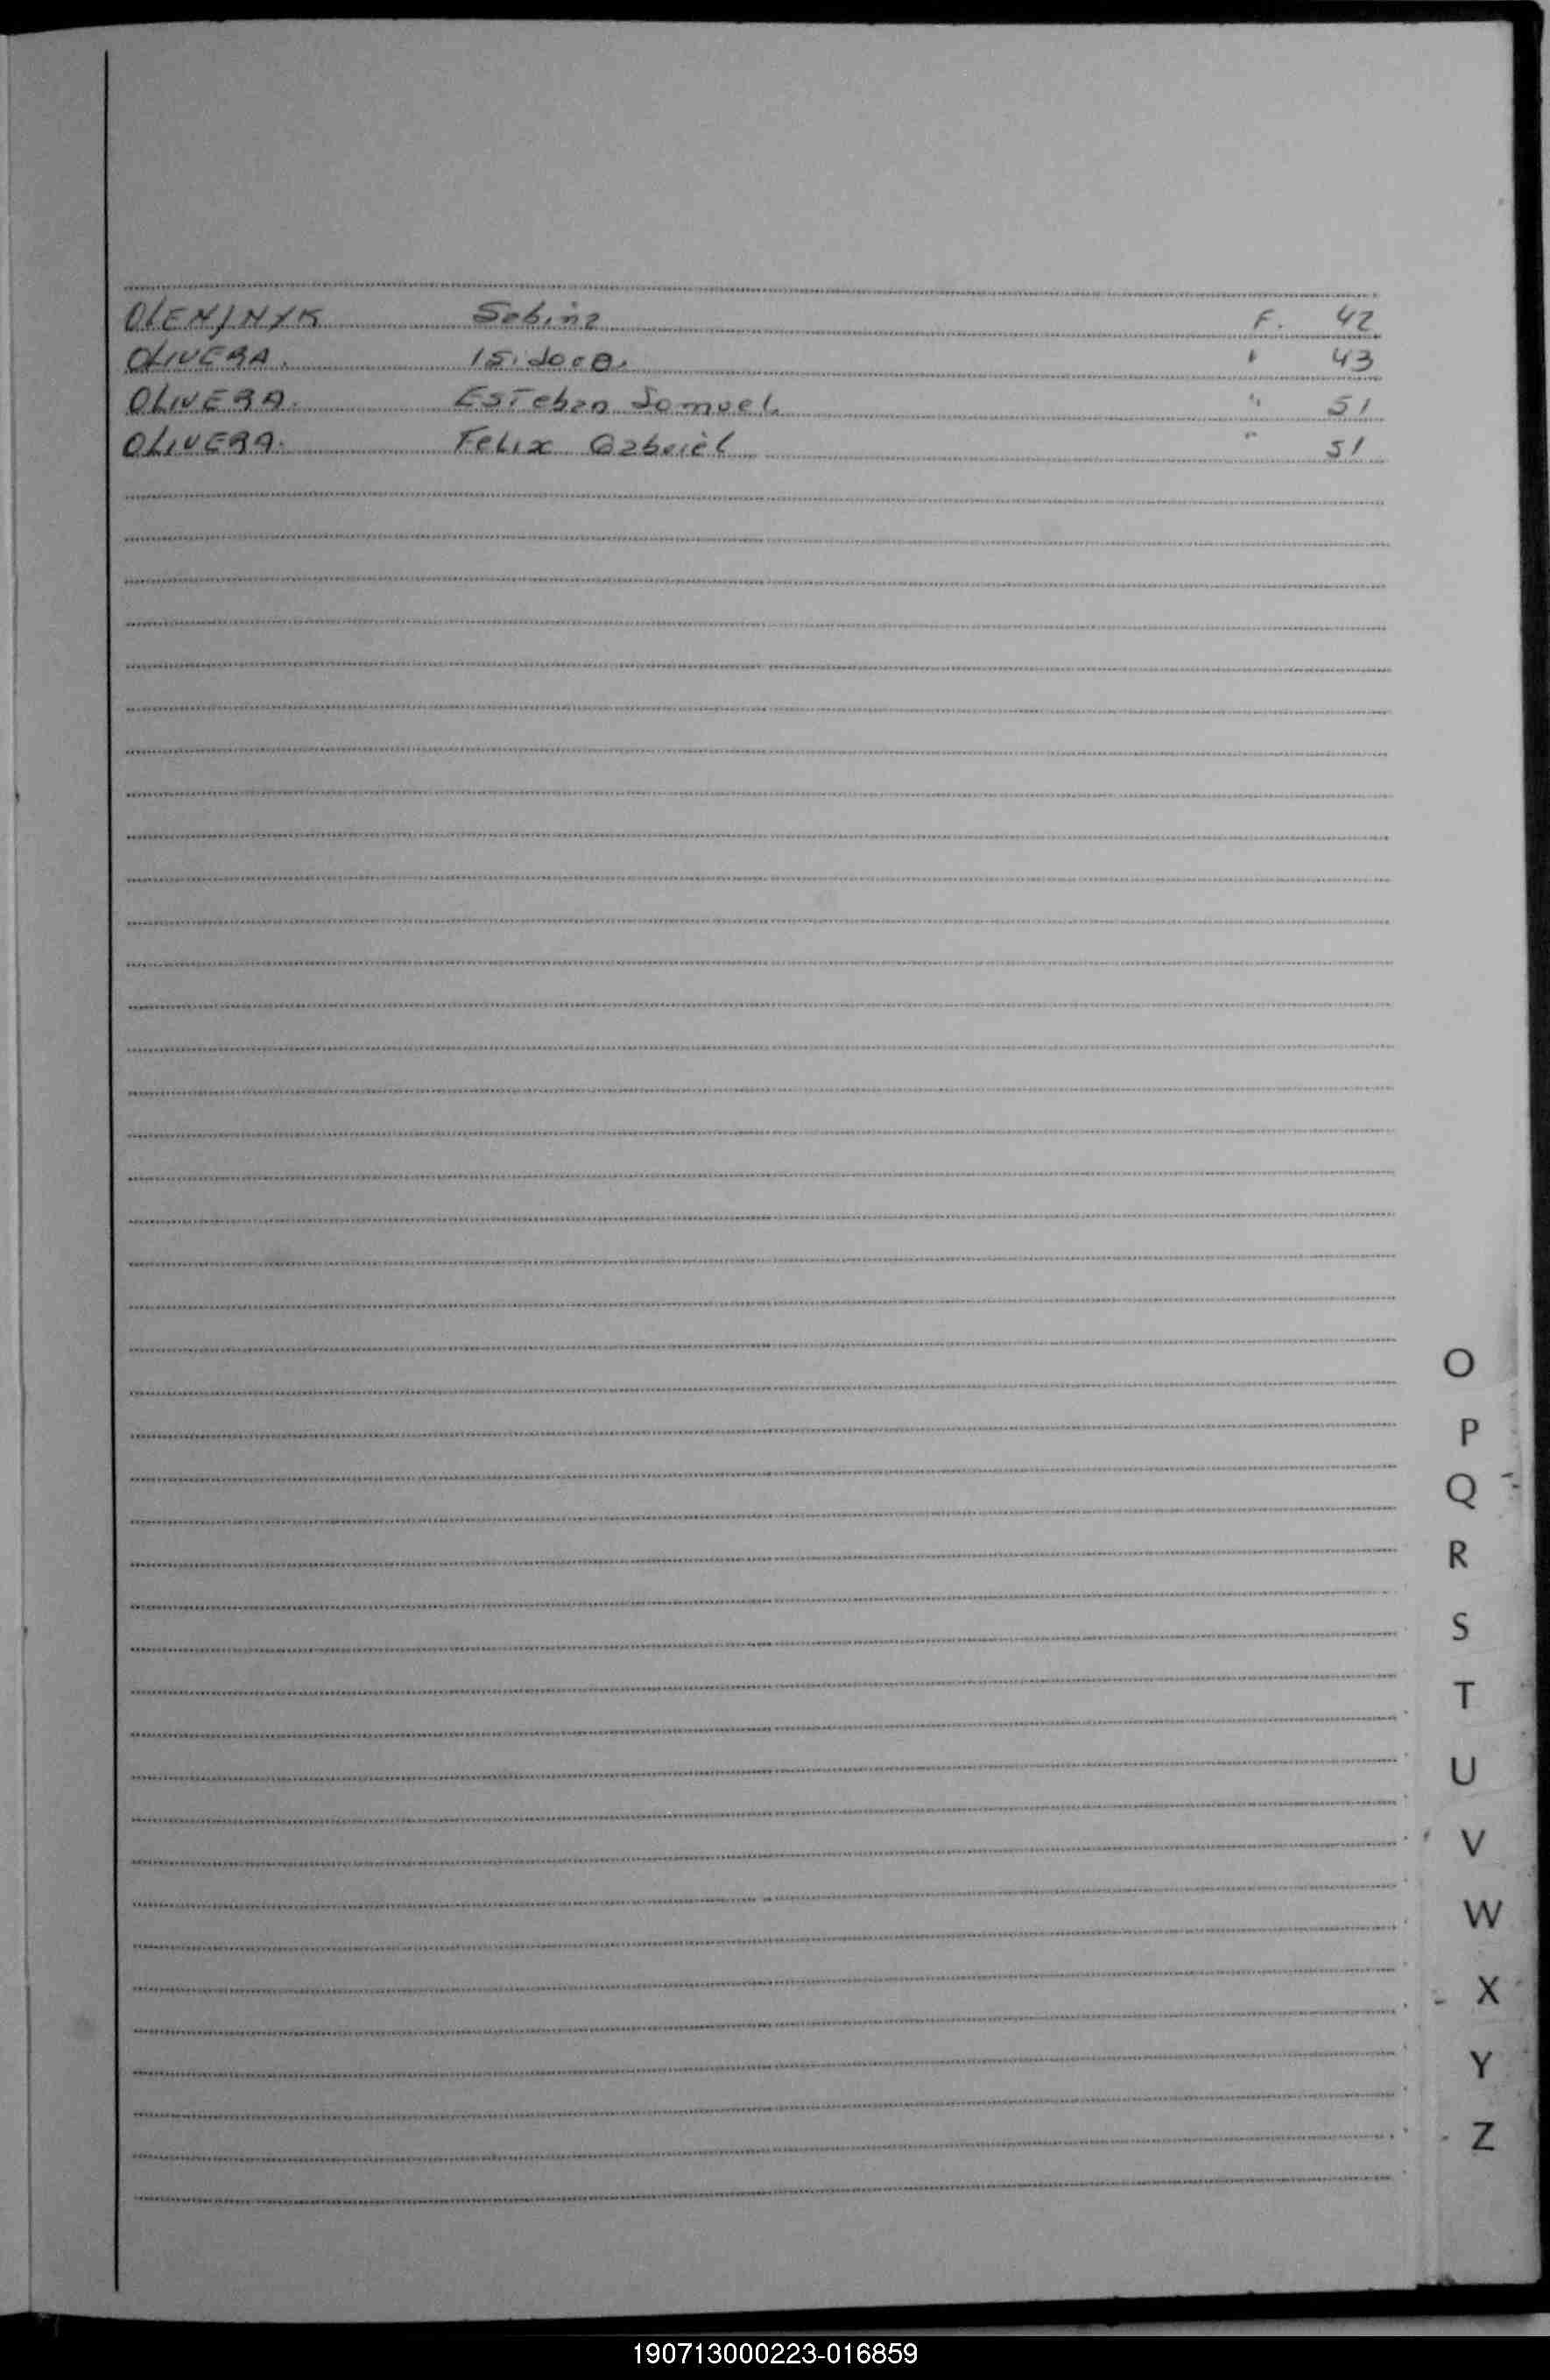 OLENJNYK Sabina F. 42
OLIVERA. Isidora. " 43
OLIVERA. Esteban Samuel " 51
OLIVERA. Felix Gabriel " 51
O
P
Q
R
S
T
U
V
W
X
Y
Z
190713000223-016859